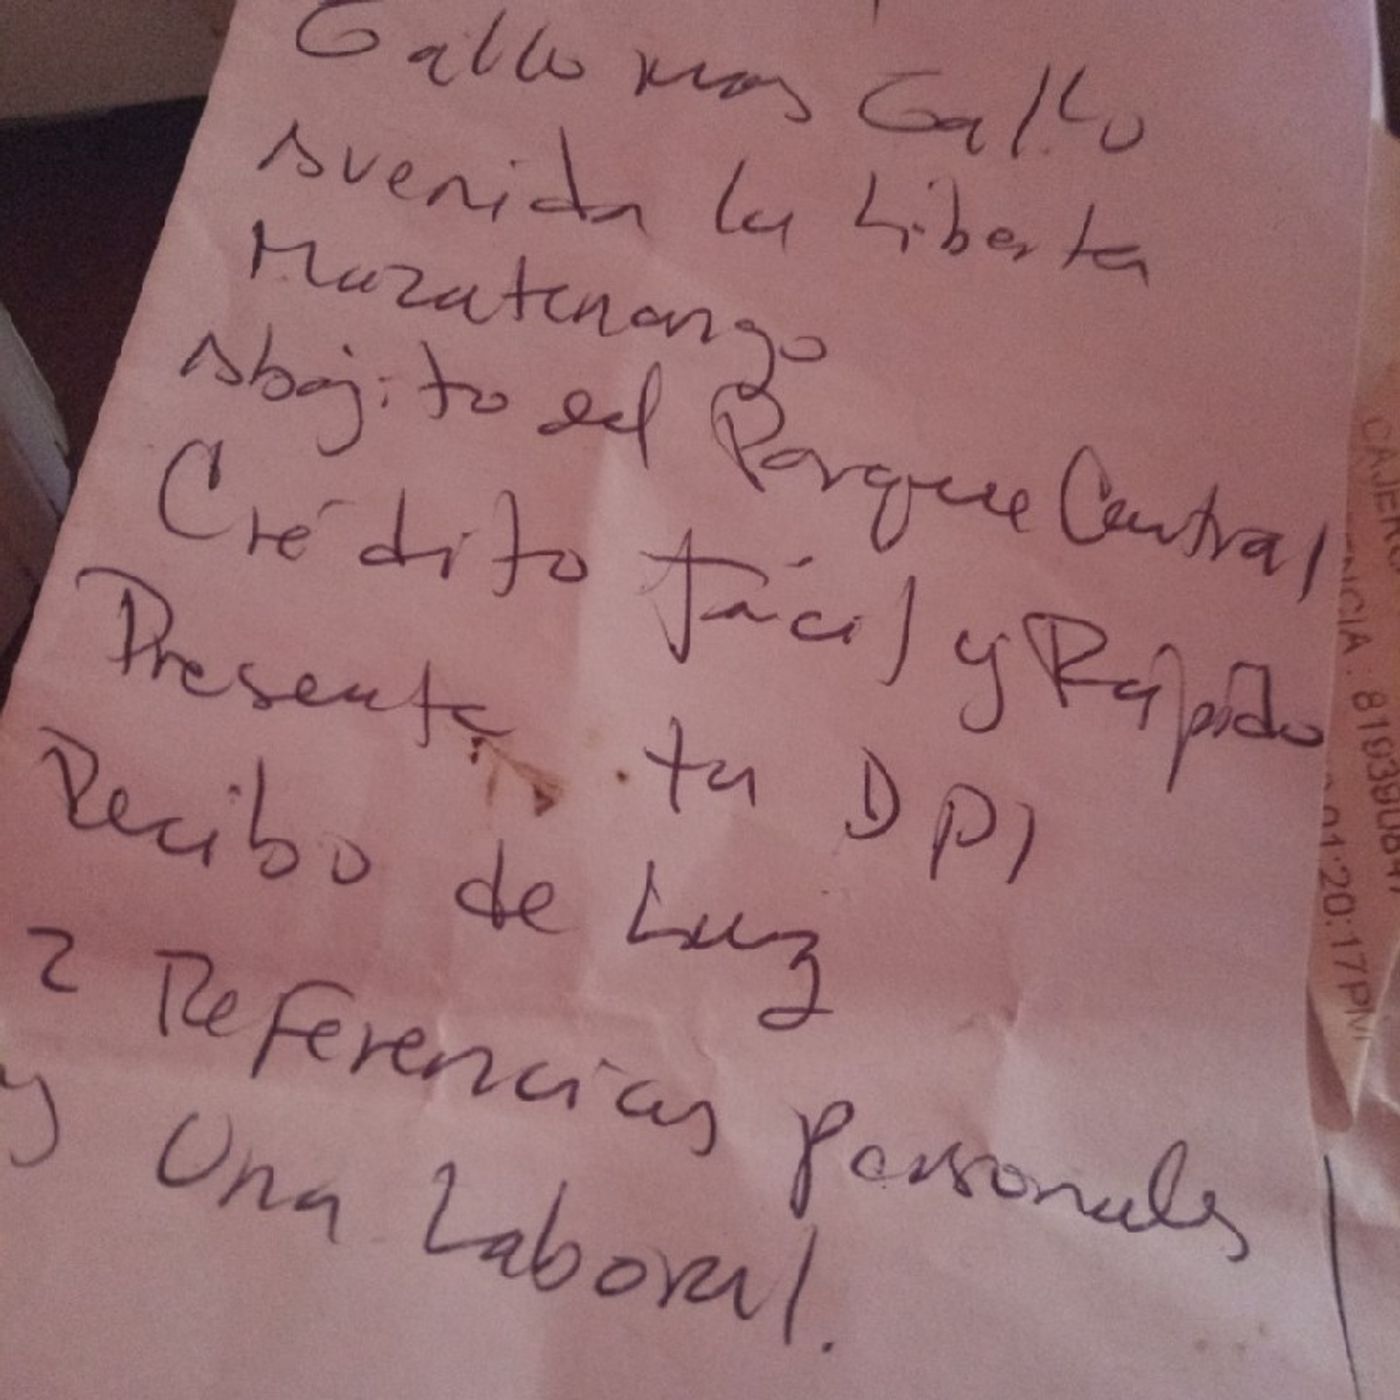 Gallo mas Gallo
Avenida la Liberta
Mazatenango
Abajito del Parque Central
Crédito fácil y Rápido
Presenta tu DPI
Recibo de Luz
2 Referencias Personales
y Una Laboral.
CAJERO
NCIA. 81939
01:20:17PM